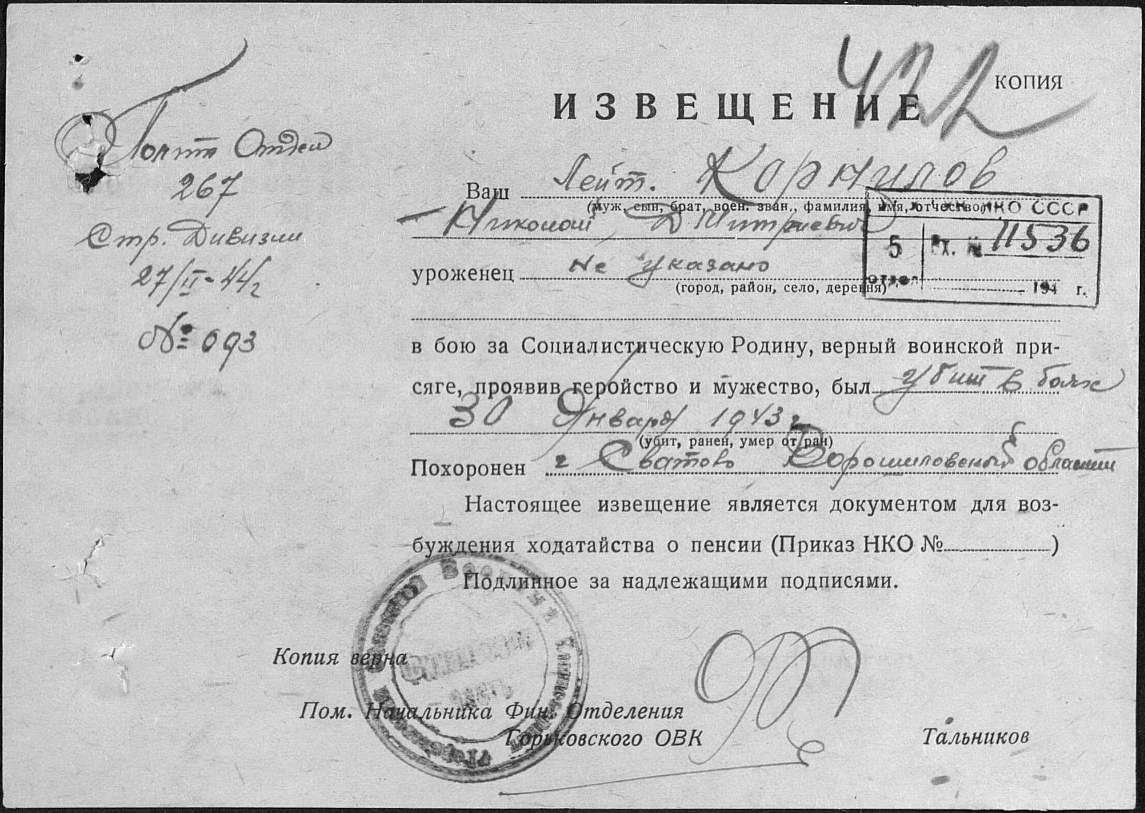 422
КОПИЯ
ИЗВЕЩЕНИЕ
Полит Отдел
267
Стр. Дивизии
27/II-44г
№ 693
Ваш Лейт. Корнилов
(муж, сын, брат, воен. зван., фамилия, имя, отчество)
Николай Дмитриевич
НКО СССР
5 Вх. № 11536
отдел 194 г.
уроженец не указано
(город, район, село, деревня)
в бою за Социалистическую Родину, верный воинской при-
сяге, проявив геройство и мужество, был убит в боях
30 Января 1943 г
(убит, ранен, умер от ран)
Похоронен г Сватово Ворошиловской области
Настоящее извещение является документом для воз-
буждения ходатайства о пенсии (Приказ НКО № )
Подлинное за надлежащими подписями.
Копия верна
Пом. Начальника Фин. Отделения
Горьковского ОВК Тальников